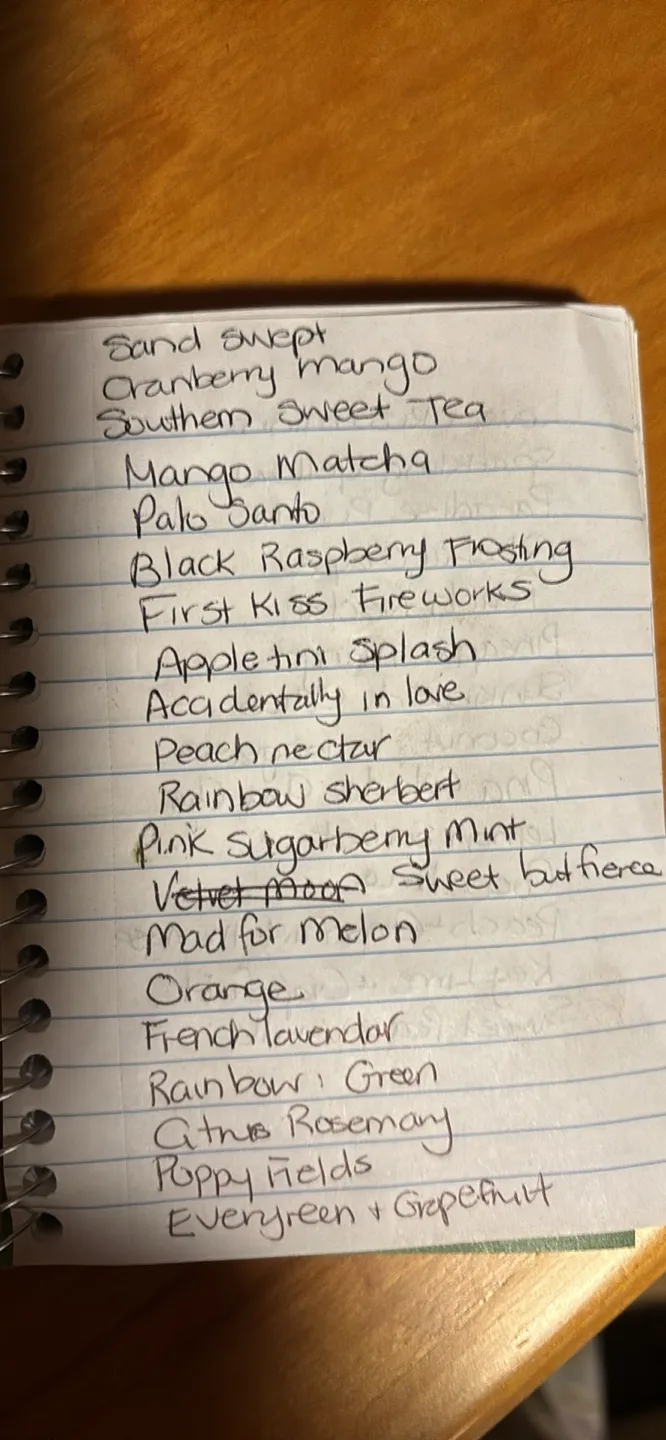 Sand swept
Cranberry mango
Southern Sweet Tea
Mango Matcha
Palo Santo
Black Raspberry Frosting
First Kiss Fireworks
Appletini Splash
Accidentally in love
Peach nectar
Rainbow sherbert
Pink Sugarberry Mint
Velvet Moon Sweet but fierce
Mad for Melon
Orange
French lavendar
Rainbow: Green
Citrus Rosemary
Poppy Fields
Evergreen + Grapefruit